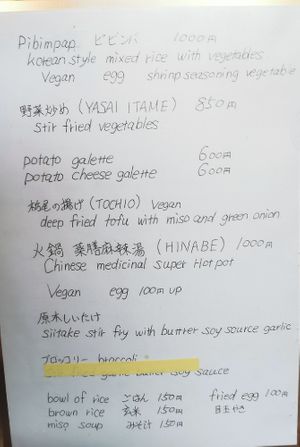 Pibimpap ビビンバ 1000円
korean style mixed rice with vegetables
Vegan egg shrinp seasoning vegetable
野菜炒め (YASAI ITAME) 850円
stir fried vegetables
potato galette 600円
potato cheese galette 600円
栃尾の揚げ (TOCHIO) Vegan
deep fried tofu with miso and green onion
火鍋 薬膳麻辣湯 (HINABE) 1000円
Chinese medicinal super Hot pot
Vegan egg 100円 up
原木しいたけ
siitake stir fry with butter soy source garlic
ブロッコリー broccoli
garlic butter soy sauce
bowl of rice ごはん 150円 fried egg 100円
brown rice 玄米 150円 目玉やき
miso soup みそ汁 150円